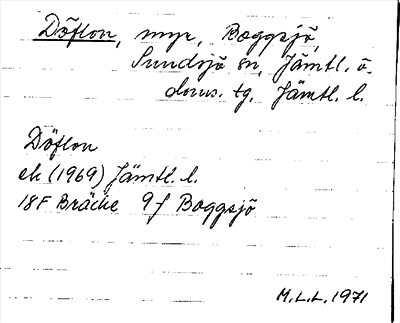 Döflon, myr, Boggsjö,
Sundsjö sn, Jämtl. ö.
doms. tg, Jämtl. l.
Döflon
ek (1969) Jämtl. l.
18F Bräcke 9f Boggsjö
M.L.L. 1971